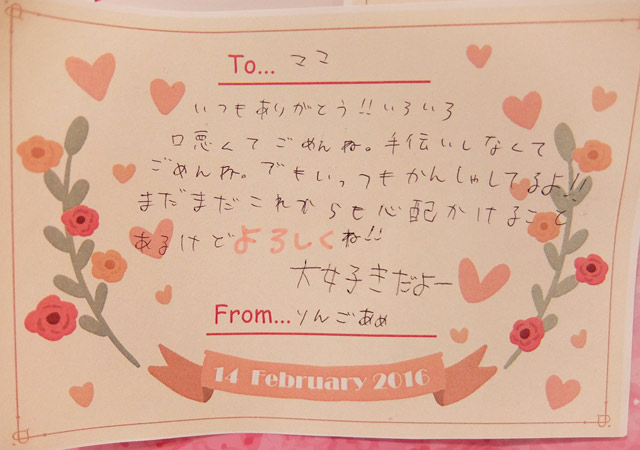 To... ママ
いつもありがとう!!いろいろ
口悪くてごめんね。手伝いしなくて
ごめんね。でもいっつもかんしゃしてるよ!!
まだまだこれからも心配かけること
あるけどよろしくね!!
大好きだよー
From... りんごあめ
14 February 2016